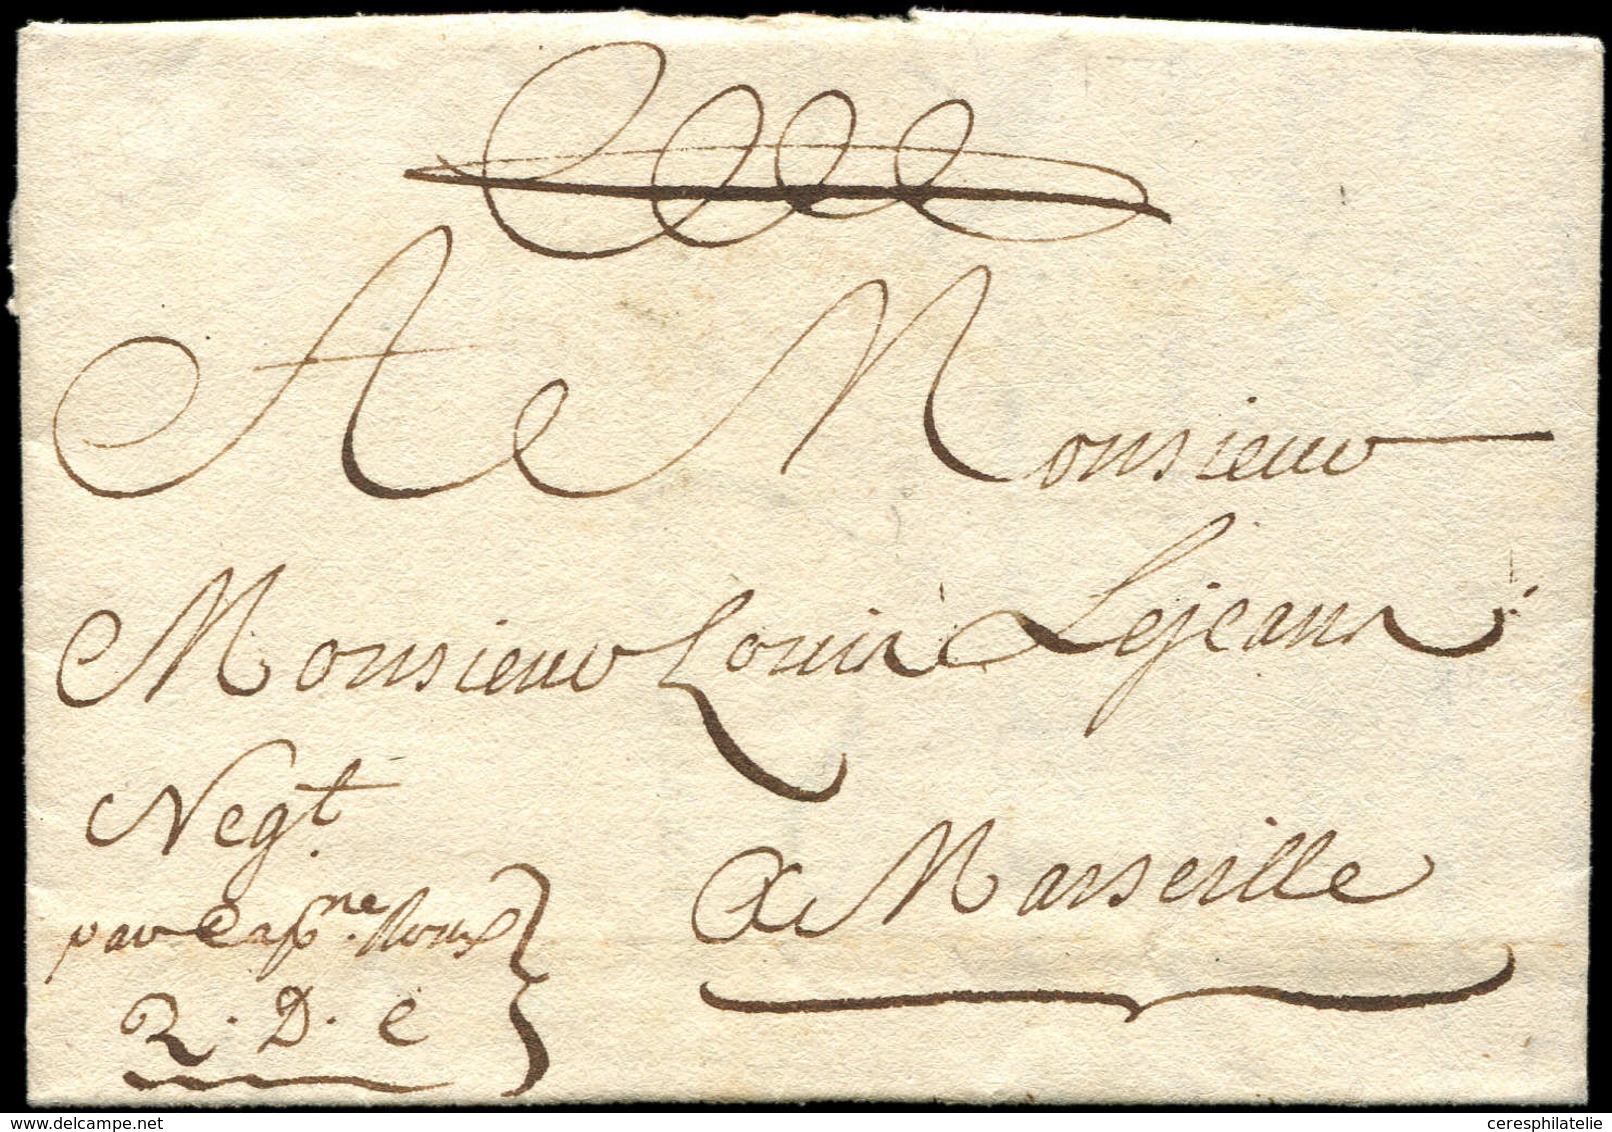 A Monsieur
Monsieur Louis Lejeans
Negt.
a Marseille
par Capne. Roux
R. D. C
www.delcampe.net
ceresphilatelie